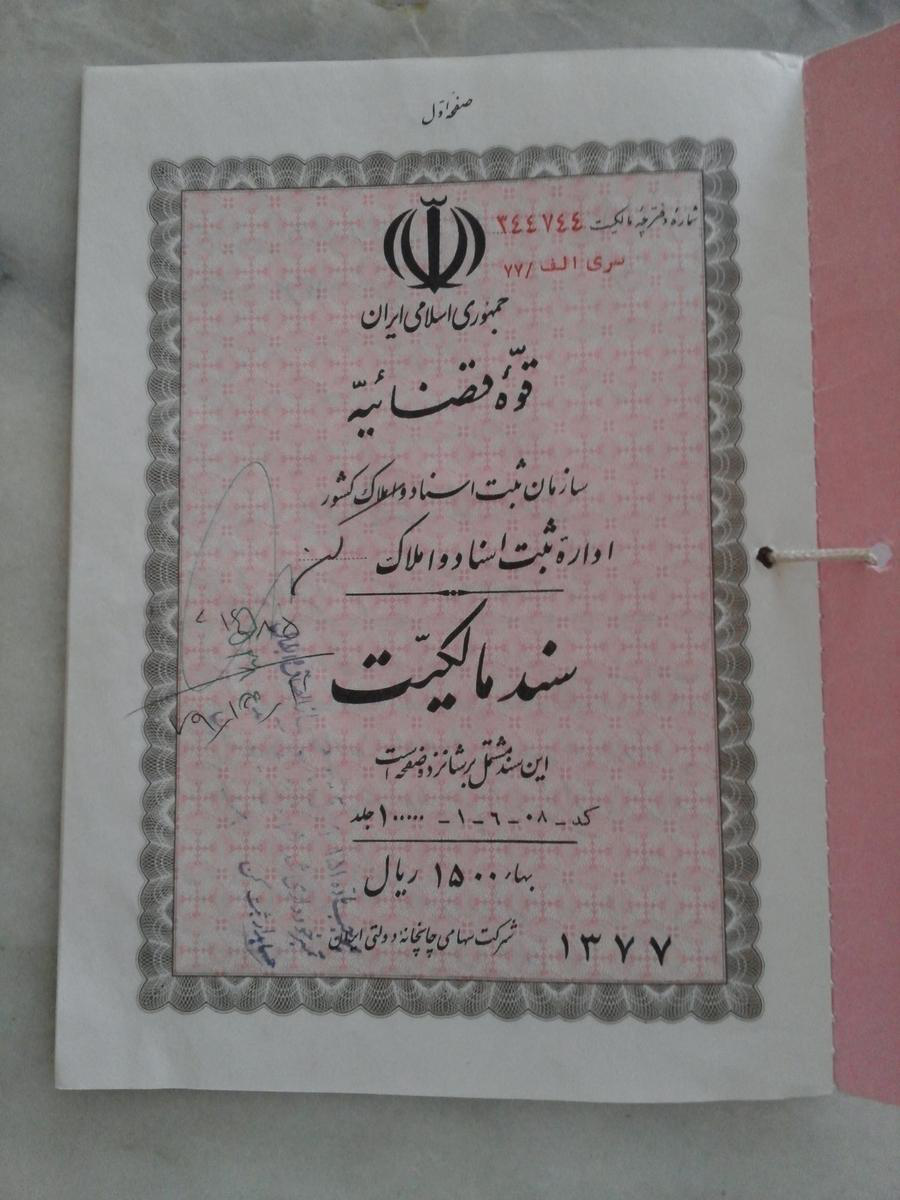 صفحهٔ اوّل
شمارهٔ دفترچهٔ مالکیت ۳٤٤۷٤٤
سری الف /۷۷
جمهوری اسلامی ایران
قوّهٔ قضائیّه
سازمان ثبت اسناد و املاک کشور
ادارهٔ ثبت اسناد و املاک کن
سند مالکیّت
این سند مشتمل بر شانزده صفحه است
کد - ۰۸ - ٦ - ۱ - ۱۰۰۰۰۰ جلد
بهاء ۱۵۰۰ ریال
شرکت سهامی چاپخانهٔ دولتی ایران
۱۳۷۷